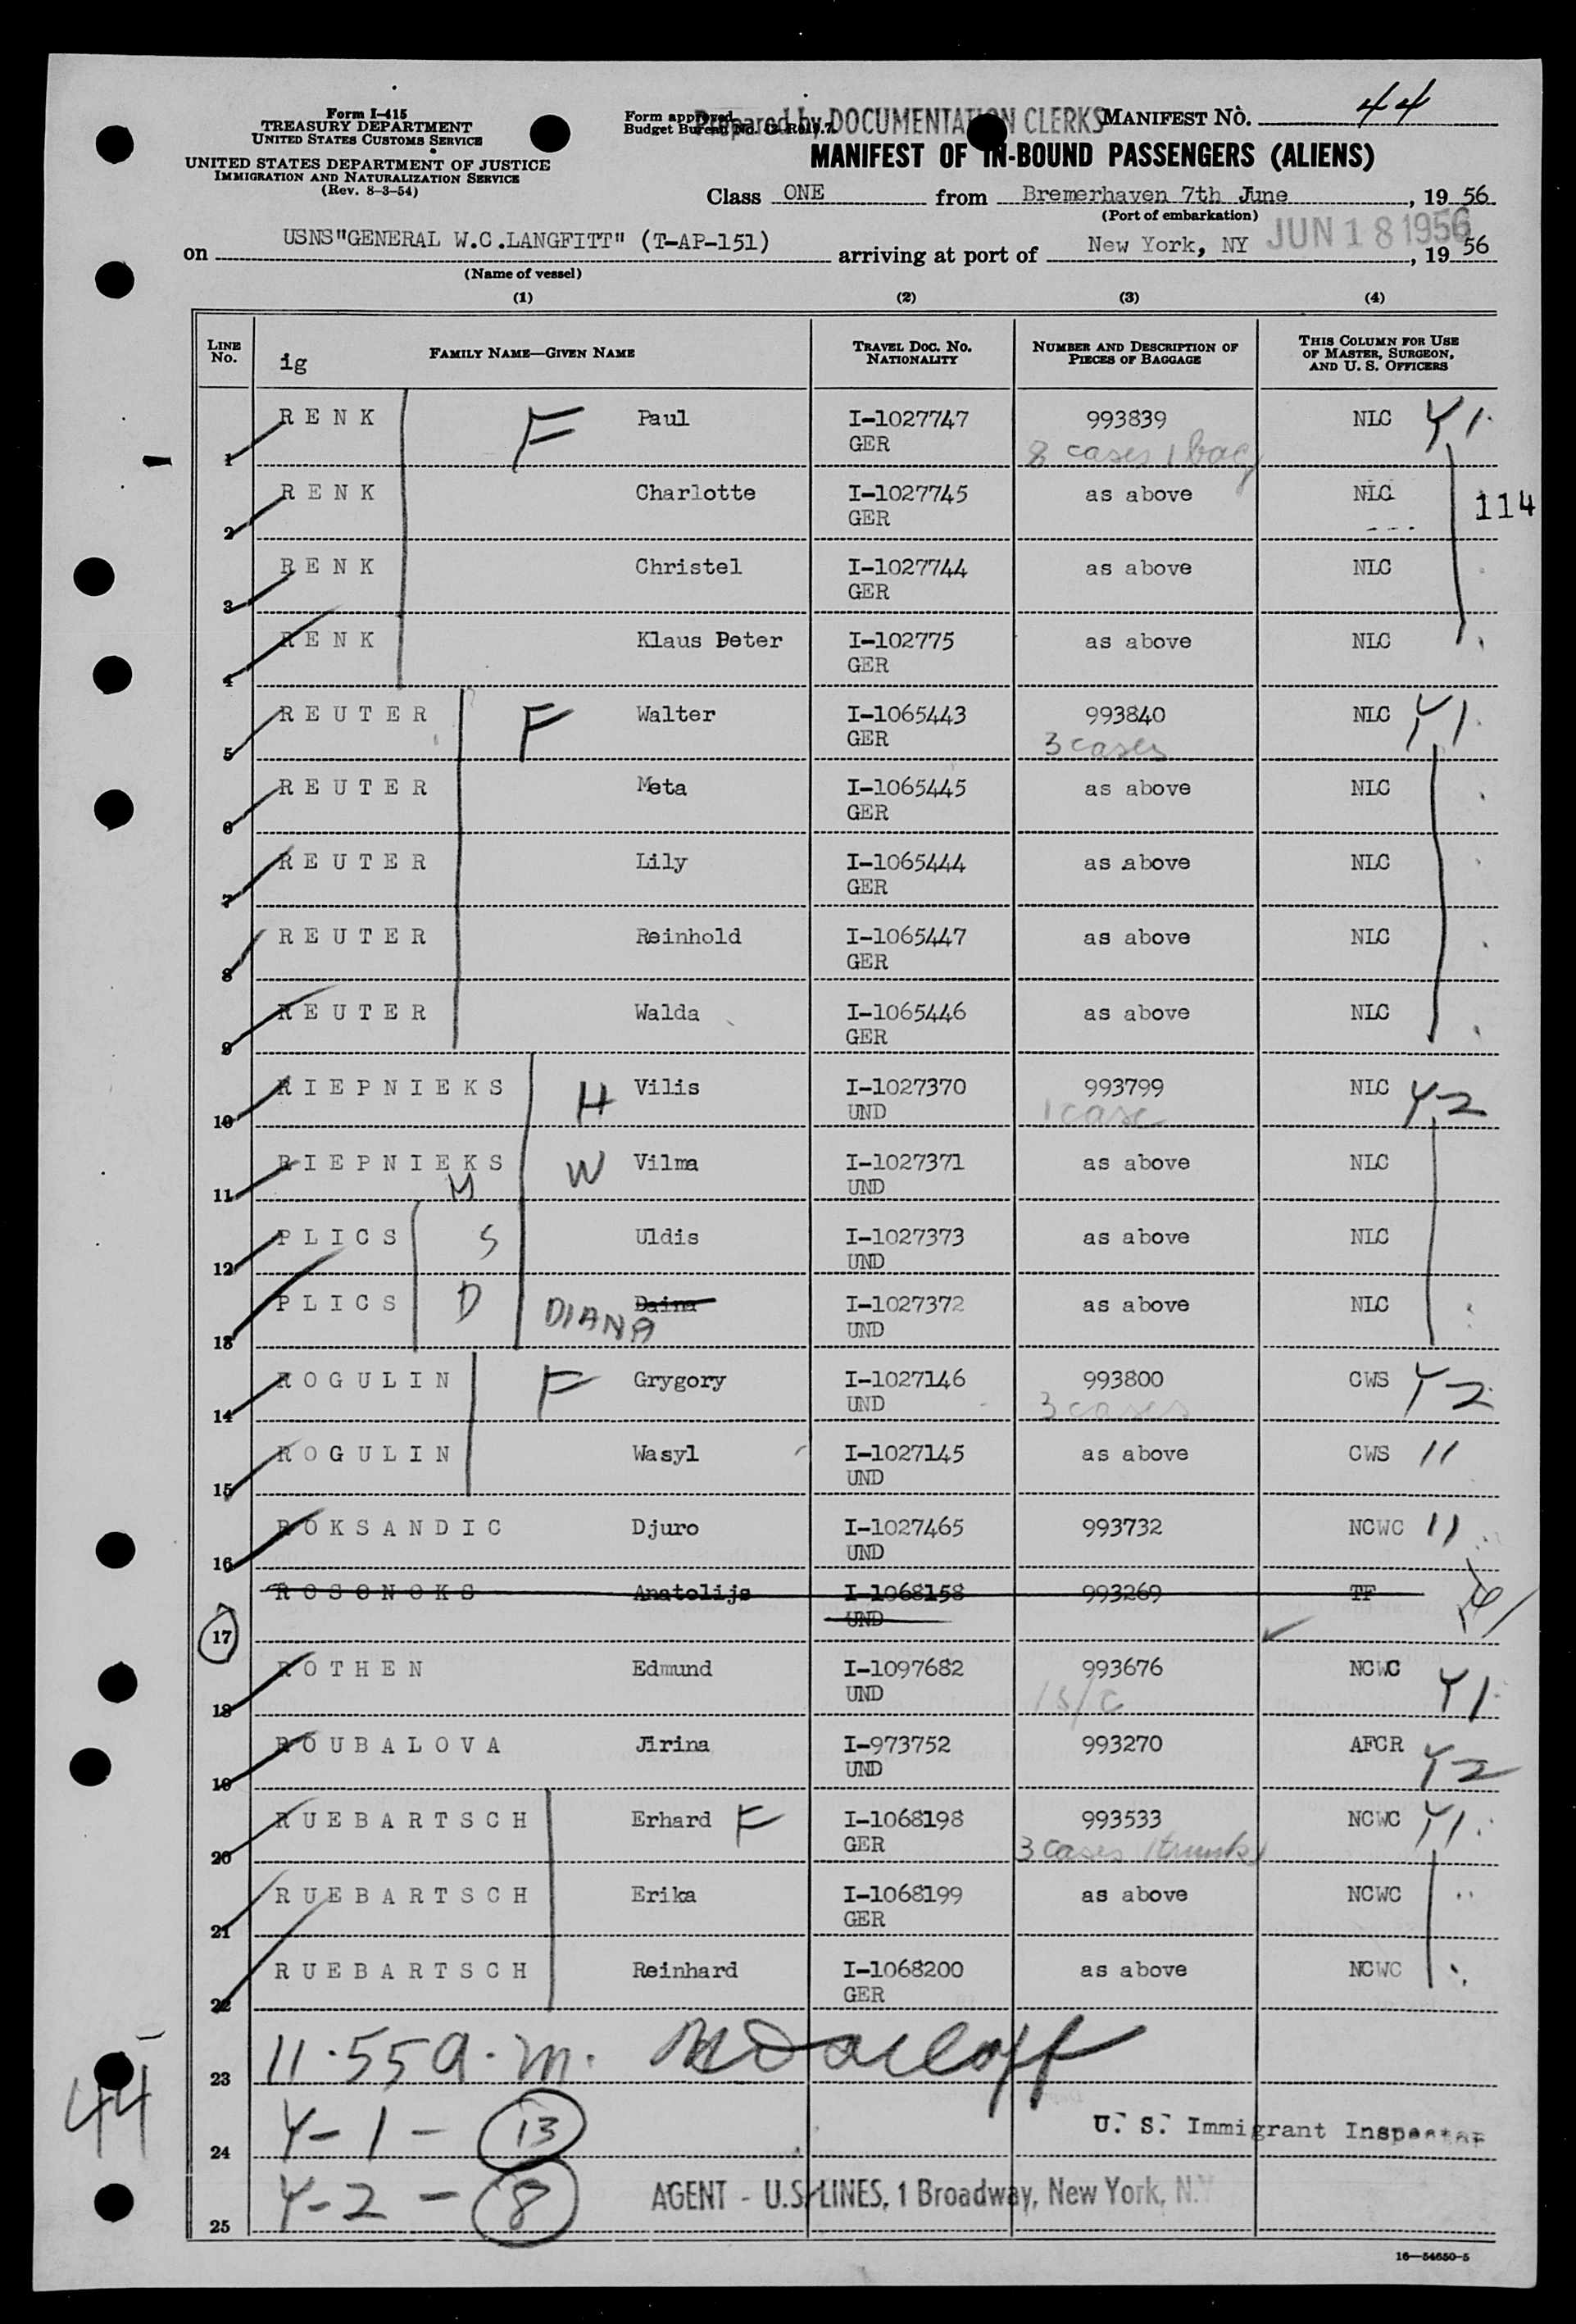 Form I-415
TREASURY DEPARTMENT
UNITED STATES CUSTOMS SERVICE
UNITED STATES DEPARTMENT OF JUSTICE
IMMIGRATION AND NATURALIZATION SERVICE
(Rev. 8-3-54)
Form approved
Budget Bureau No.
Prepared by DOCUMENTATION CLERKS
MANIFEST NO. 44
MANIFEST OF IN-BOUND PASSENGERS (ALIENS)
Class ONE from Bremerhaven 7th June, 19 56
(Port of embarkation)
JUN 18 1956
on USNS"GENERAL W.C.LANGFITT" (T-AP-151) arriving at port of New York, NY, 19 56
(Name of vessel)
(1) (2) (3) (4)
LINE NO. ig FAMILY NAME—GIVEN NAME TRAVEL DOC. NO. NATIONALITY NUMBER AND DESCRIPTION OF PIECES OF BAGGAGE THIS COLUMN FOR USE OF MASTER, SURGEON, AND U. S. OFFICERS
1 RENK F Paul I-1027747 993839 NLC Y1
GER 8 cases 1 bag
2 RENK Charlotte I-1027745 as above NLC 114
GER
3 RENK Christel I-1027744 as above NLC
GER
4 RENK Klaus Peter I-102775 as above NLC
GER
5 REUTER F Walter I-1065443 993840 NLC Y1
GER 3 cases
6 REUTER Meta I-1065445 as above NLC
GER
7 REUTER Lily I-1065444 as above NLC
GER
8 REUTER Reinhold I-1065447 as above NLC
GER
9 REUTER Walda I-1065446 as above NLC
GER
10 RIEPNIEKS H Vilis I-1027370 993799 NLC Y2
UND 1 case
11 RIEPNIEKS W Vilma I-1027371 as above NLC
M UND
12 PLICS S Uldis I-1027373 as above NLC
UND
13 PLICS D DIANA Daina I-1027372 as above NLC
UND
14 ROGULIN F Grygory I-1027146 993800 CWS Y2
UND 3 cases
15 ROGULIN Wasyl I-1027145 as above CWS 11
UND
16 ROKSANDIC Djuro I-1027465 993732 NCWC 11
UND
17 ROSONOKS Anatolijs I-1068158 993269 TF
UND
18 ROTHEN Edmund I-1097682 993676 NCWC Y1
UND 1 s/c
19 ROUBALOVA Jirina I-973752 993270 AFCR Y2
UND
20 RUEBARTSCH Erhard F I-1068198 993533 NCWC Y1
GER 3 cases 1 trunk
21 RUEBARTSCH Erika I-1068199 as above NCWC
GER
22 RUEBARTSCH Reinhard I-1068200 as above NCWC
GER
23 11.55 a.m.
44
24 Y-1 - 13 U. S. Immigrant Inspector
25 Y-2 - 8 AGENT - U.S. LINES, 1 Broadway, New York, N.Y
16—54650-5